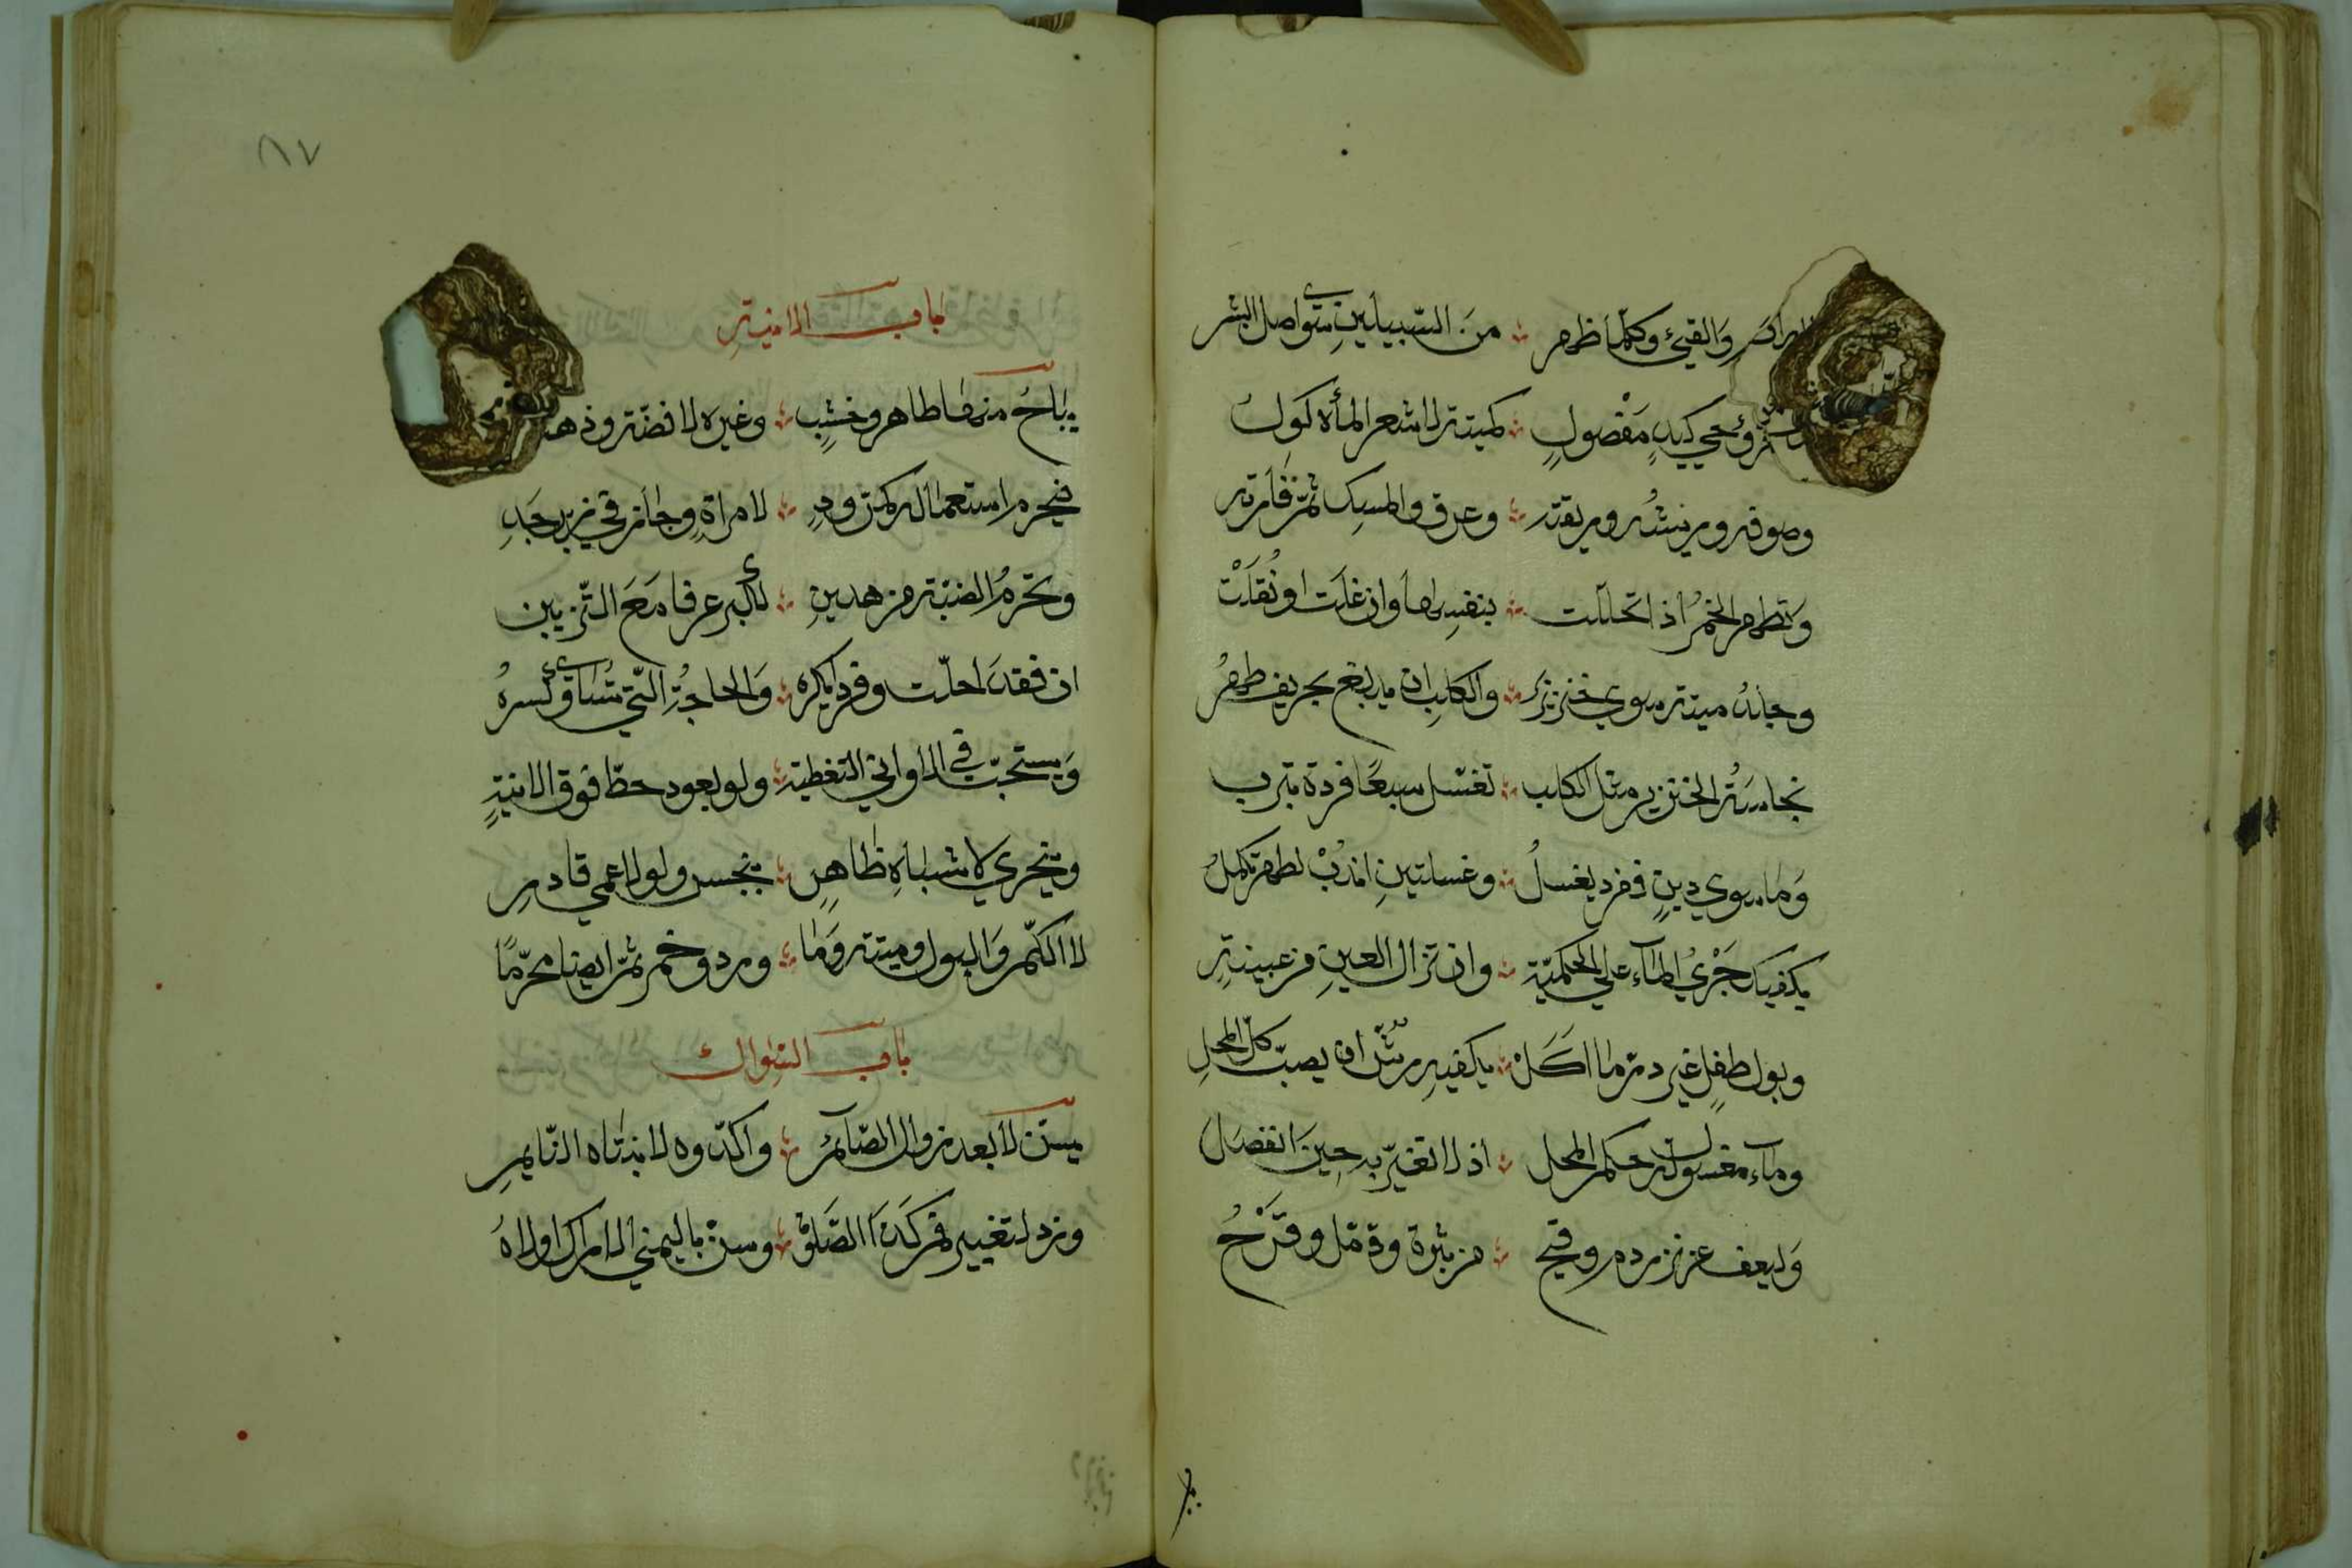 والقيئ وكلما ظهر ∴ من السبيلين سوى اصل البشر
وحي كيد مفصول ∴ كميتة لا شعر المأكول
وصوفه وريشه وريقته ∴ وعرق والمسك ثم فارته
وتطهر الخمر اذا تخللت ∴ بنفسها وان غلت او نقلت
وجلد ميتة سوي خنزير ∴ والكلب ان يدبغ بحريف طهر
نجاسة الخنزير مثل الكلب ∴ تغسل سبعا فردة بترب
وما سوي دين ففرد يغسل ∴ وغسلتين اندب لطهر تكمل
يكفيك جري الماء علي الحكمية ∴ وان تزال العين من عينية
وبول طفل غير در ما اكل ∴ يكفيه رش ان يصب كل المحل
وماء مغسول له حكم المحل ∴ اذ لا تغير به حين انفصل
وليعف عن نزر دم وقيح ∴ من بثرة وقمل وقرح
٨٧
باب الانية
يباح منها طاهر وخشب ∴ وغيره لا فضة وذهب
فيحرم استعماله كمرود ∴ لامراة وجاز في زبرجد
وتحرم الضبة من هدين ∴ لكبر عرفا مع التزيين
ان فقدا حلت وفردا يكره ∴ والحاجة التي تساوي كسره
ويستحب في الاواني التغطية ∴ ولو بعود حط فوق الانية
ويتحري لاشتباه طاهر ∴ بنجس ولو لاعمي قادر
لا الكم والبول وميتة وما ∴ ورد وخمر ثم ايضا محرما
باب السواك
يسن لا بعد زوال الصائم ∴ واكدوه لانتباه النايم
وزد لتغيير فم كذا الصلوة ∴ وسن باليمني الاراك اولاه